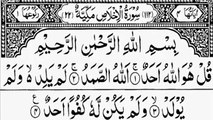 سُوْرَةُ الْاِخْلَاصِ مَكِّيَّةٌ
بِسْمِ اللّٰهِ الرَّحْمٰنِ الرَّحِيْمِ
قُلْ هُوَ اللّٰهُ اَحَدٌ ۝١ اَللّٰهُ الصَّمَدُ ۝٢ لَمْ يَلِدْ وَلَمْ
يُوْلَدْ ۝٣ وَلَمْ يَكُنْ لَّهٗ كُفُوًا اَحَدٌ ۝٤